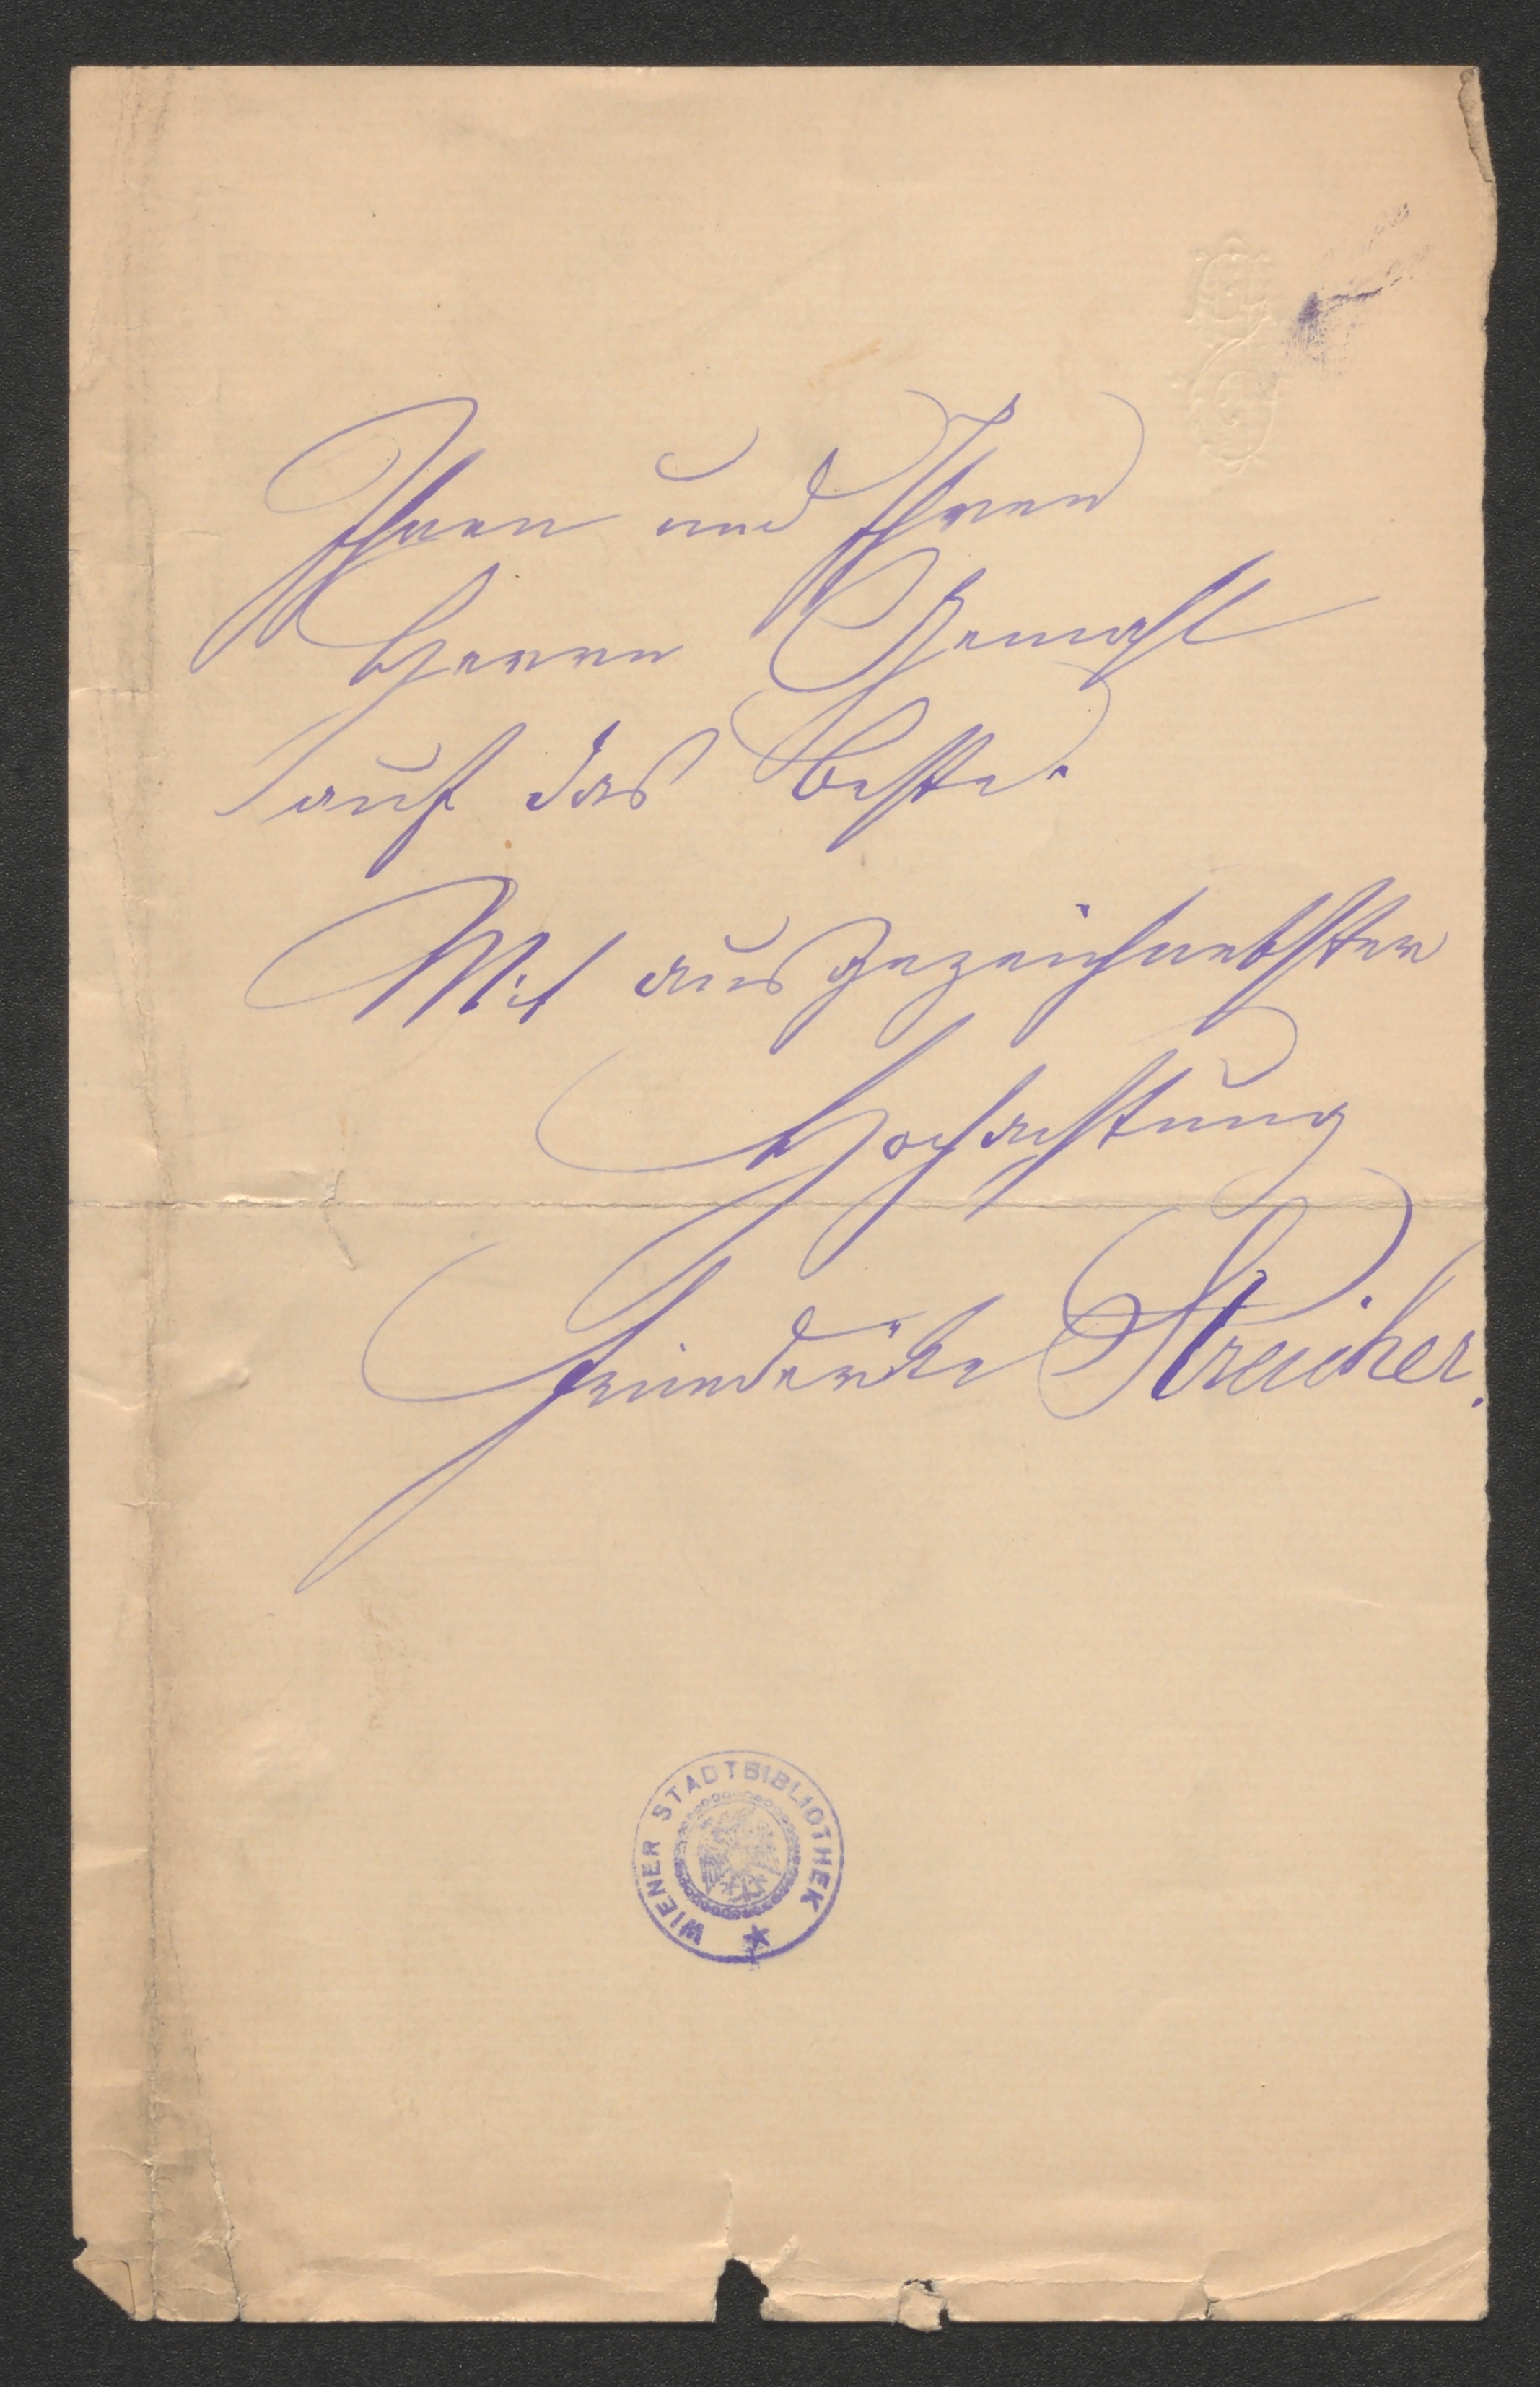 Ihnen und Ihren
Herrn Gemahl
auf das Beste.
Mit ausgezeichnetster
Hochachtung
Friederike Streicher.
WIENER STADTBIBLIOTHEK